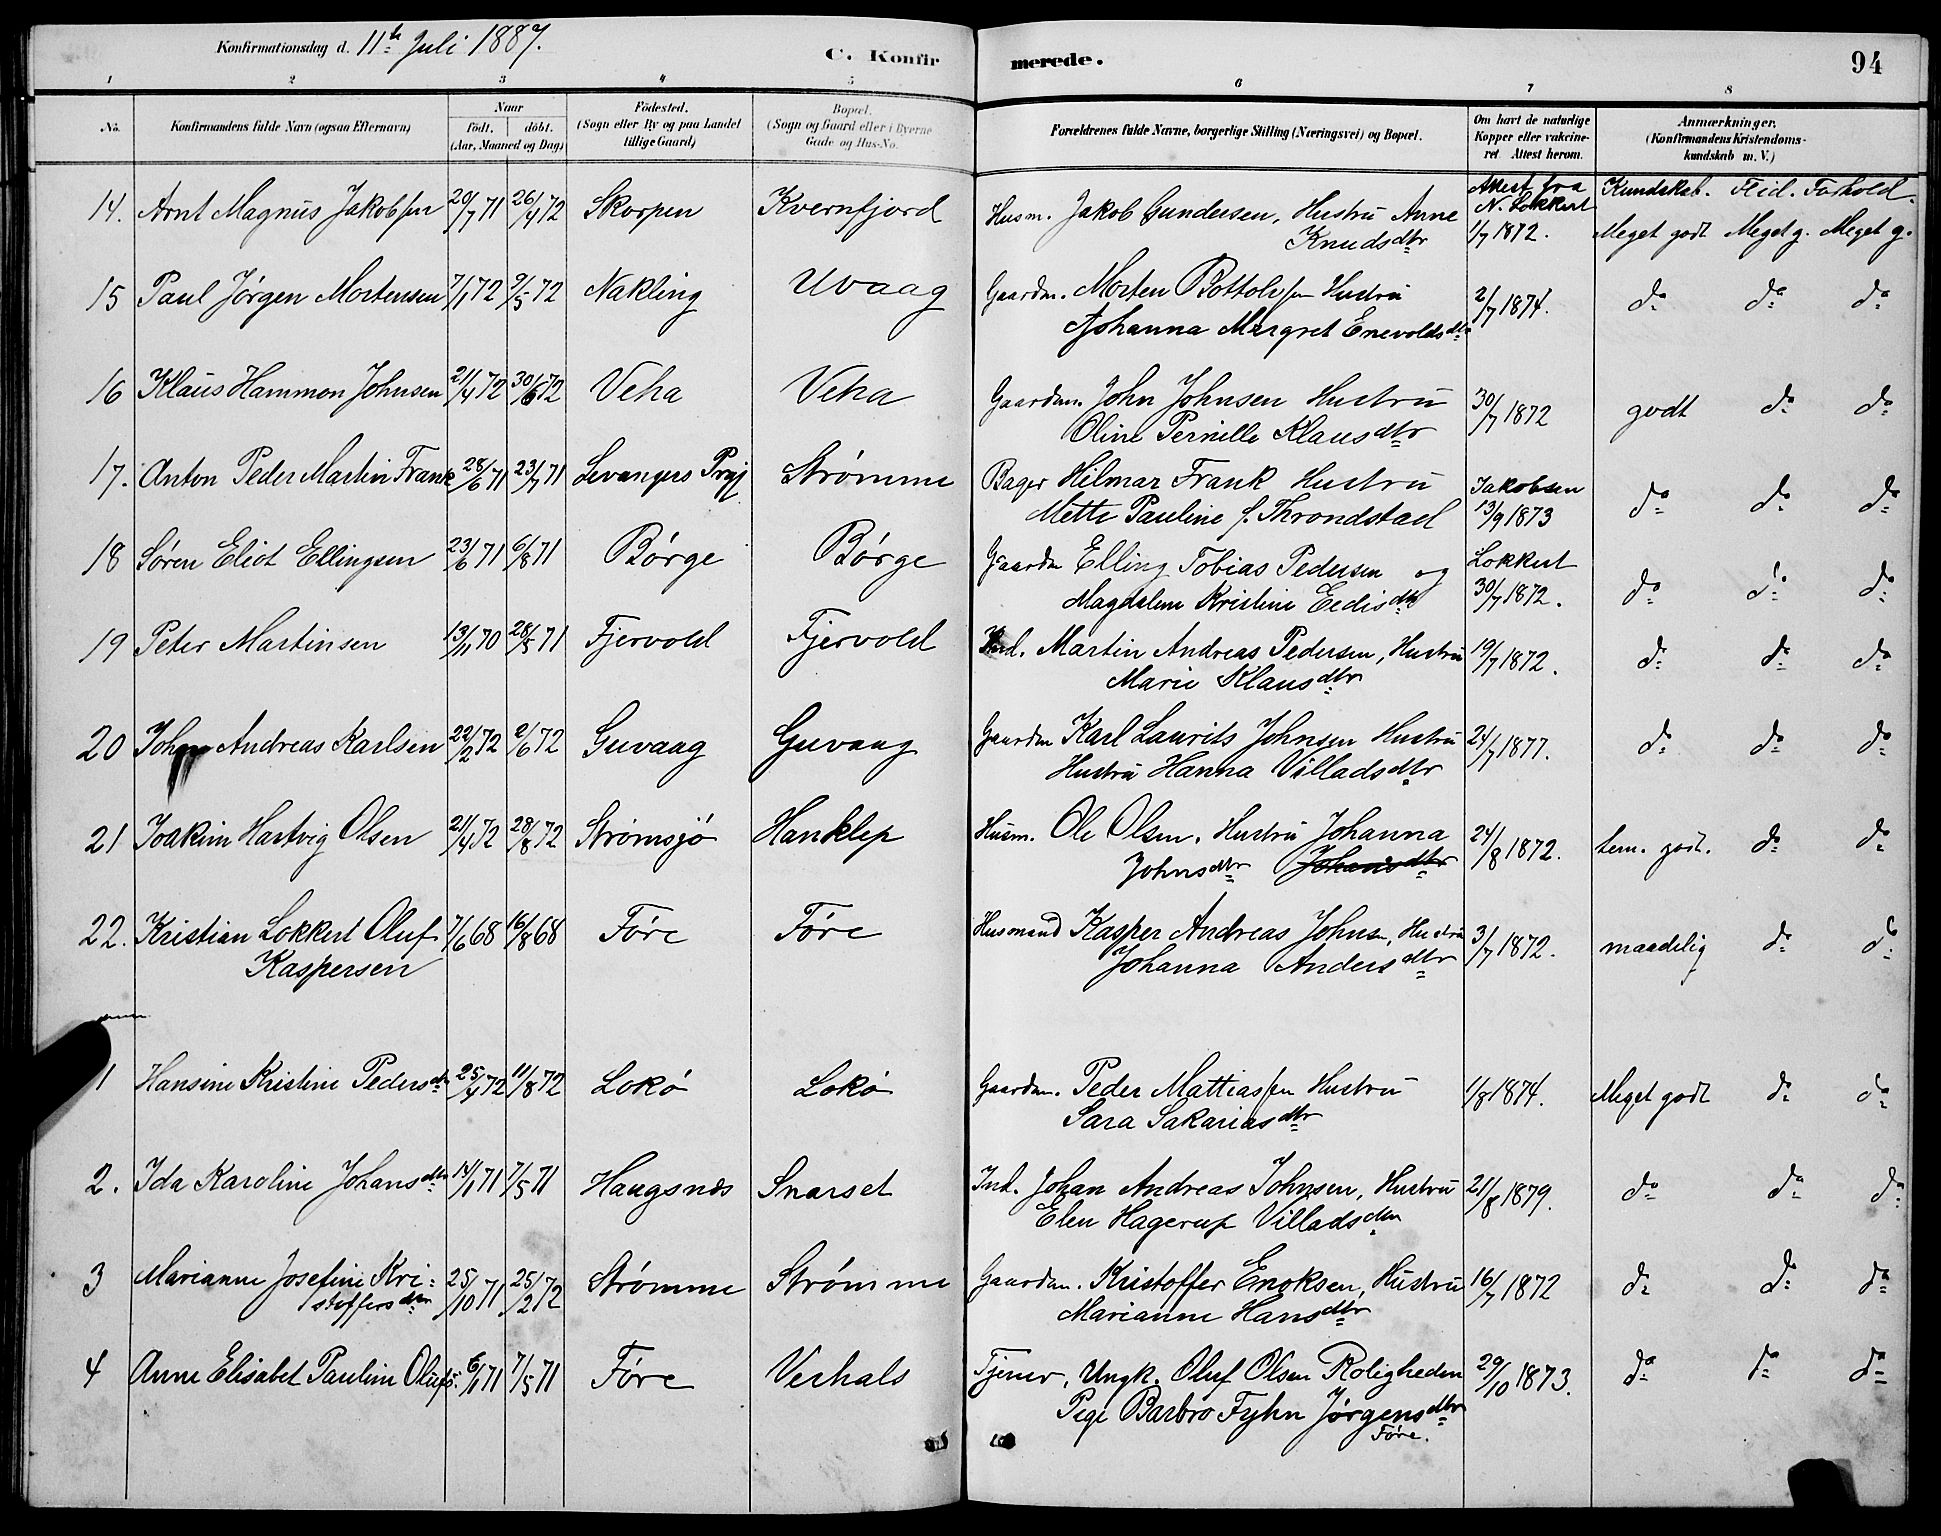 Konfirmationsdag d. 11te Juli 1887. C. Konfirmerede. 94
1 2 3 4 5 6 7 8
No. Konfirmandens fulde Navn (ogsaa Efternavn) Naar født. døbt. (Aar, Maaned og Dag) Fødested. (Sogn eller By og paa Landet tillige Gaard) Bopæl. (Sogn og Gaard eller i Byerne Gade og Hus-No. Forældrenes fulde Navne, borgerlige Stilling (Næringsvei) og Bopæl. Om havt de naturlige Kopper eller vakcineret Attest herom. Anmærkninger. (Konfirmandens Kristendomskundskab m. V.)
14. Arnt Magnus Jakobsen 20/7 71 26/4 72 Skorpen Kvernfjord Husm. Jakob Gundersen, Hustru Anne Attest fra N. Lokkert Kundskab. Flid. Forhold.
Knudsdtr 1/7 1872. Meget godt Meget g. Meget g.
15 Paul Jørgen Mortensen 7/1 72 9/5 72 Nakling Uvaag Gaardm. Morten Bottolvsen Hustru 2/7 1874. do do do
Johanna Margret Enevoldsdtr
16 Klaus Hammon Johnsen 21/4 72 30/6 72 Veha Veha Gaardm. John Johnsen Hustru 30/7 1872 godt do do
Oline Pernille Klausdtr
17. Anton Peder Martin Frank 28/6 71 23/7 71 Levangers Prgj Strømme Bager Hilmar Frank Hustru Jakobsen do do do
Mette Pauline f. Throndstad 13/9 1873
18 Søren Eliot Ellingsen 23/6 71 6/8 71 Børge Børge Gaardm Elling Tobias Pedersen og Lokkert do do do
Magdalene Kristine Eedisdtr 30/7 1872.
19 Peter Martinsen 13/11 70 28/5 71 Fjervold Fjervold Ind. Martin Andreas Pedersen, Hustru 19/7 1872. do do do
Marie Klausdtr
20 Johan Andreas Karlsen 22/2 72 2/6 72 Guvaag Guvaag Gaardm Karl Laurits Johnsen Hustru 24/7 1877. do do do
Hustru Hanna Villadsdtr
21 Joakim Hartvig Olsen 21/4 72 28/8 72 Strømsjø Hanklep Husm. Ole Olsen. Hustru Johanna 24/8 1872. tem. godt. do do
Johnsdtr Johansdtr
22. Kristian Lokkert Oluf 7/6 68 16/8 68 Føre Føre Husmand Kasper Andreas Johnsn, Hustru 3/7 1872. maadelig do do
Kaspersen Johanna Andersdtr
1 Hansine Kristine Pedersdtr 25/4 72 11/8 72 Lokø Lokø Gaardm. Peder Mattiassen Hustru 1/8 1874. Meget godt do do
Sara Sakariasdtr
2. Ida Karoline Johansdtr 14/1 71 7/5 71 Haugsnes Snarset Ind. Johan Andreas Johnsen, Hustru 21/8 1879. do do do
Elen Hagerup Villadsdtr
3 Marianne Josefine Kri- 25/10 71 25/2 72 Strømme Strømme Gaardm. Kristoffer Enoksen, Hustru 16/7 1872 do do do
stoffersdtr Marianne Hansdtr
4 Anne Elisabet Pauline Olufs. 6/1 71 7/5 71 Føre Vechals Tjener, Ungk. Oluf Olsen Roligheden 29/10 1873. do do do
Pige Barbro Fyhn Jørgensdtr
Føre.